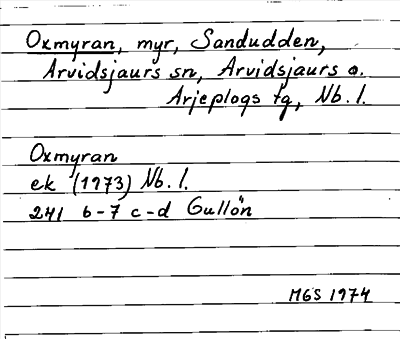 Oxmyran, myr, Sandudden,
Arvidsjaurs sn, Arvidsjaurs o.
Arjeplogs tg, Nb. l.
Oxmyran
ek (1973) Nb. l.
241 6-7 c-d Gullön
MGS 1974